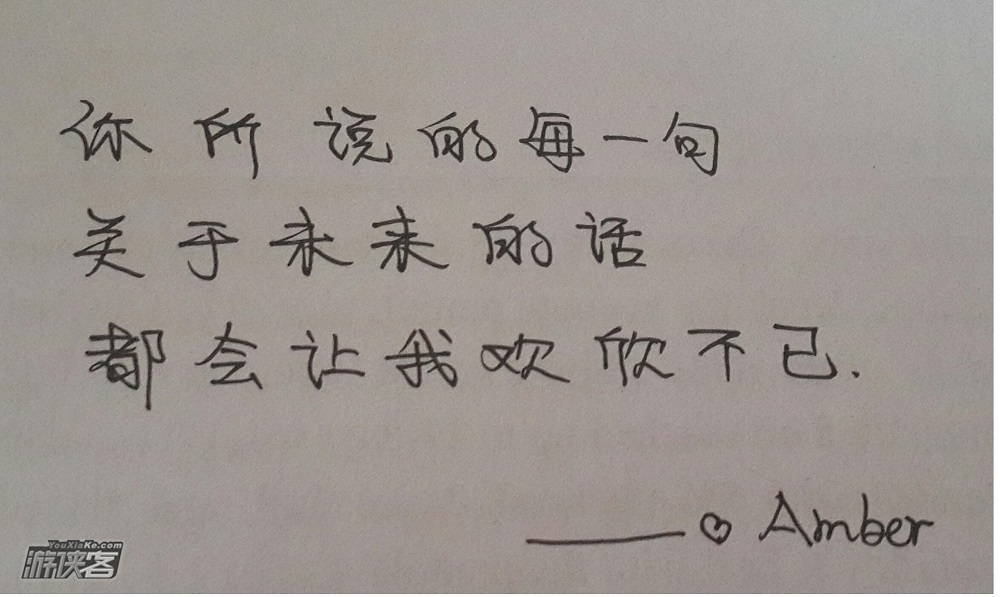 你所说的每一句
关于未来的话
都会让我欢欣不已.
——♡ Amber
YouXiaKe.com
游侠客